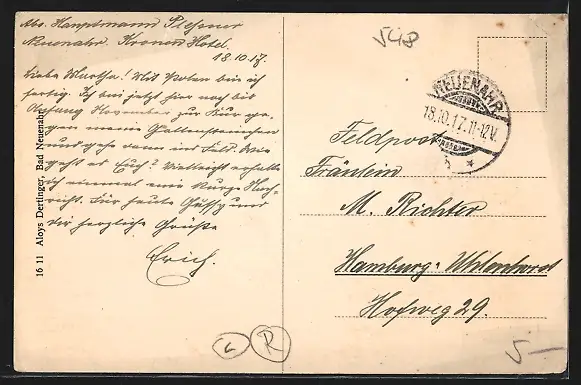 Abs. Hauptmann Plessner
Neuenahr. Kronen Hotel.
18.10.17.
Liebe Martha! Mit Polen bin ich
fertig. Ich bin jetzt hier noch bis
Anfang November zur Kur ge-
gen meine Gallensteinchen
und gehe dann ins Feld. Wie
geht es Euch? Vielleicht erhalte
ich einmal eine kurze Nach-
richt. Für heute Gruss und
dir herzliche Grüße
Erich.
16 11 Aloys Dertinger, Bad Neuenahr
548
NEUENAHR
18.10.17.11-12V.
Feldpost
Fräulein
M. Richter
Hamburg-Uhlenhorst
Hofweg 29.
R
5.—